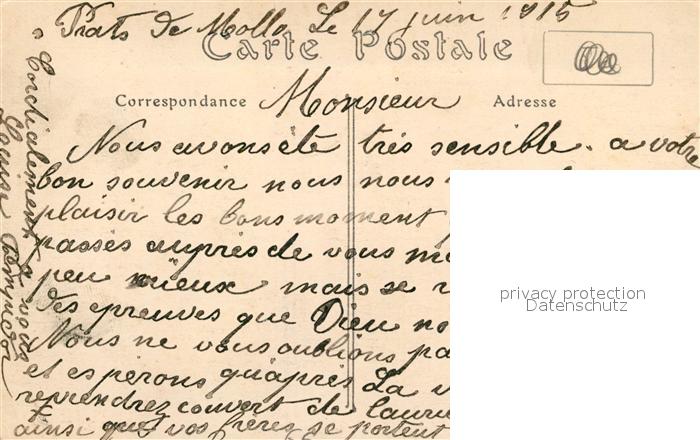 Prats de Mollo Le 17 juin 1915
Carte Postale
Correspondance
Adresse
Monsieur
Nous avons été très sensible a votre
bon souvenir nous nous
plaisir les bons moment
passés auprès de vous
peu mieux mais se
des epreuves que Dieu
Nous ne vous oublions
et esperons qu'après La
reprendrez couvert de
ainsi que vos frères se portent
Cordialement a vous
Louise
privacy protection
Datenschutz